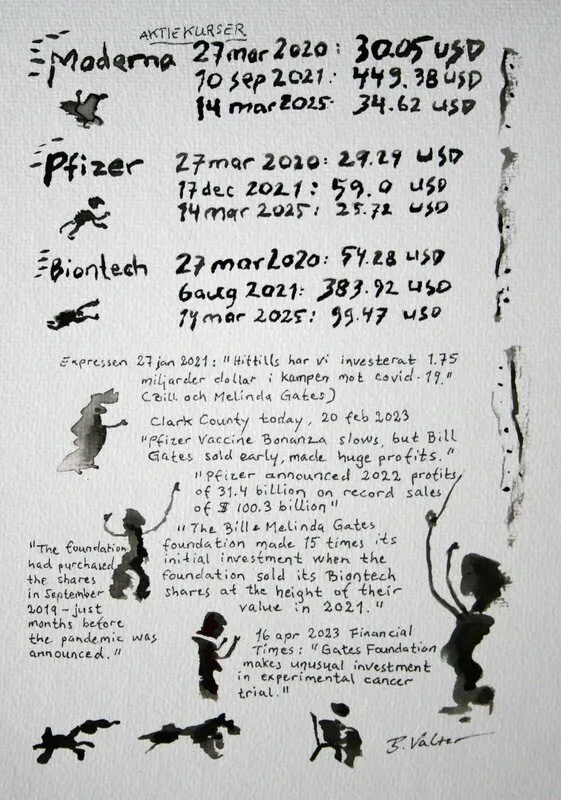 AKTIEKURSER
Moderna 27 mar 2020: 30.05 USD
10 sep 2021: 449.38 USD
14 mar 2025: 34.62 USD
Pfizer 27 mar 2020: 29.29 USD
17 dec 2021: 59.0 USD
14 mar 2025: 25.72 USD
Biontech 27 mar 2020: 54.28 USD
6 aug 2021: 383.92 USD
14 mar 2025: 99.47 USD
Expressen 27 jan 2021: "Hittills har vi investerat 1.75
miljarder dollar i kampen mot covid-19."
(Bill och Melinda Gates)
Clark County today, 20 feb 2023
"Pfizer Vaccine Bonanza slows, but Bill
Gates sold early, made huge profits."
"Pfizer announced 2022 profits
of 31.4 billion on record sales
of $ 100.3 billion"
"The Bill & Melinda Gates
foundation made 15 times its
initial investment when the
foundation sold its Biontech
shares at the height of their
value in 2021."
"The foundation
had purchased
the shares
in September
2019 - just
months before
the pandemic was
announced."
16 apr 2023 Financial
Times: "Gates Foundation
makes unusual investment
in experimental cancer
trial."
B. Valter